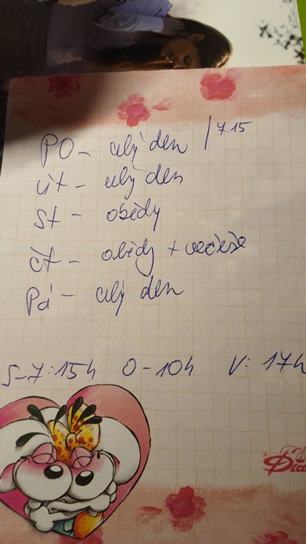 PO - celý den / 7.15
út - celý den
st - obědy
čt - obědy + večeře
Pá - celý den
S-7:15h O-10h V: 17h
Did